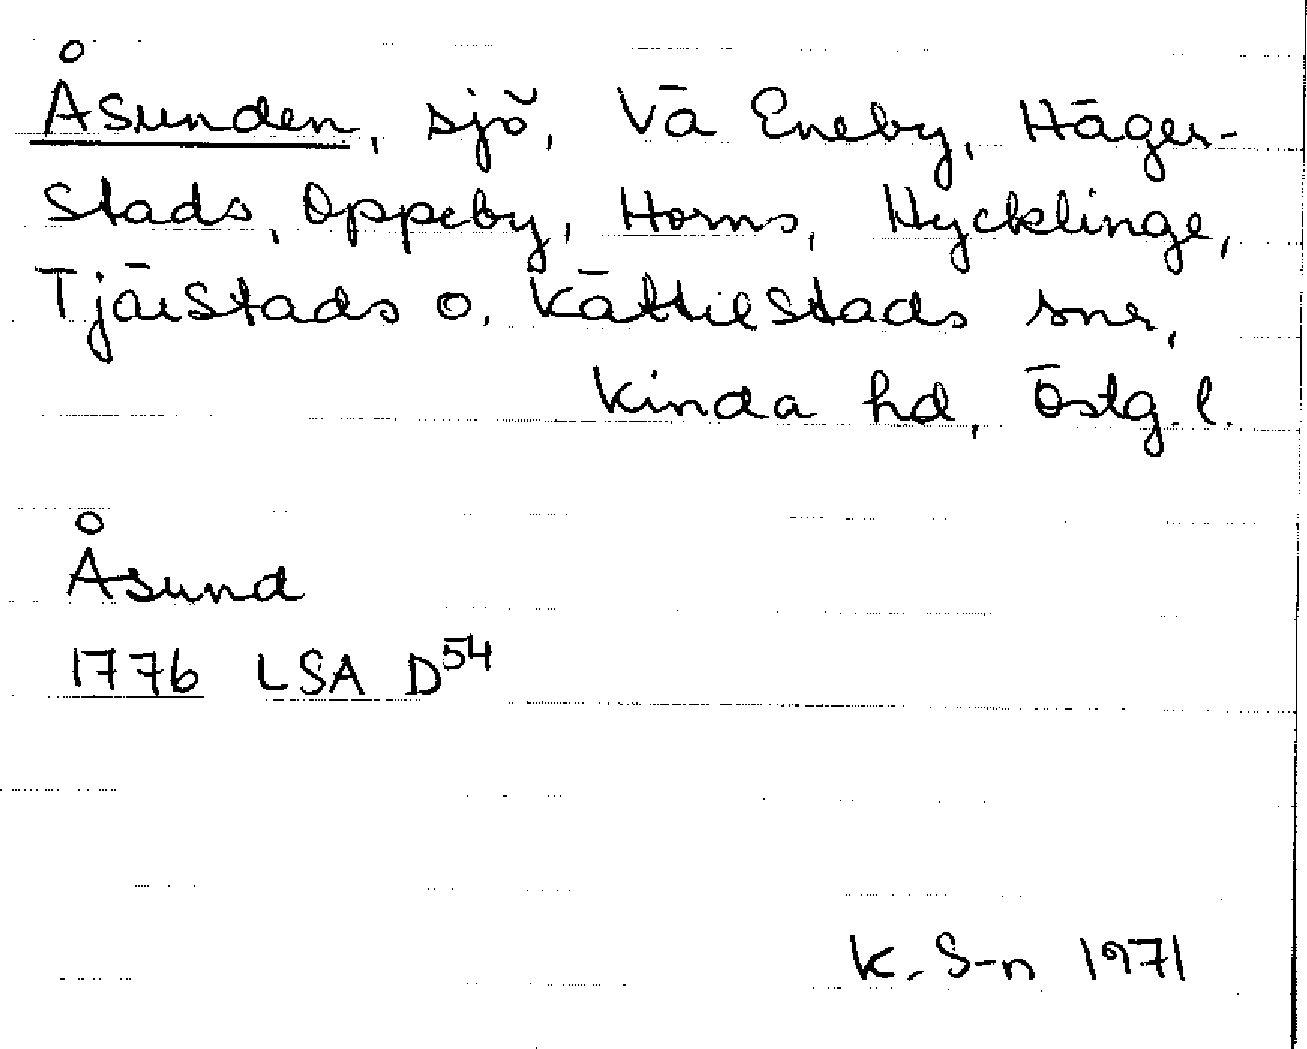 Åsunden, sjö, Vä Eneby, Häger-
stads, Oppeby, Horns, Hycklinge,
Tjärstads o. Kättilstads snr,
Kinda hd, Östg. l.
Åsund
1776 LSA D54
K. S-n 1971